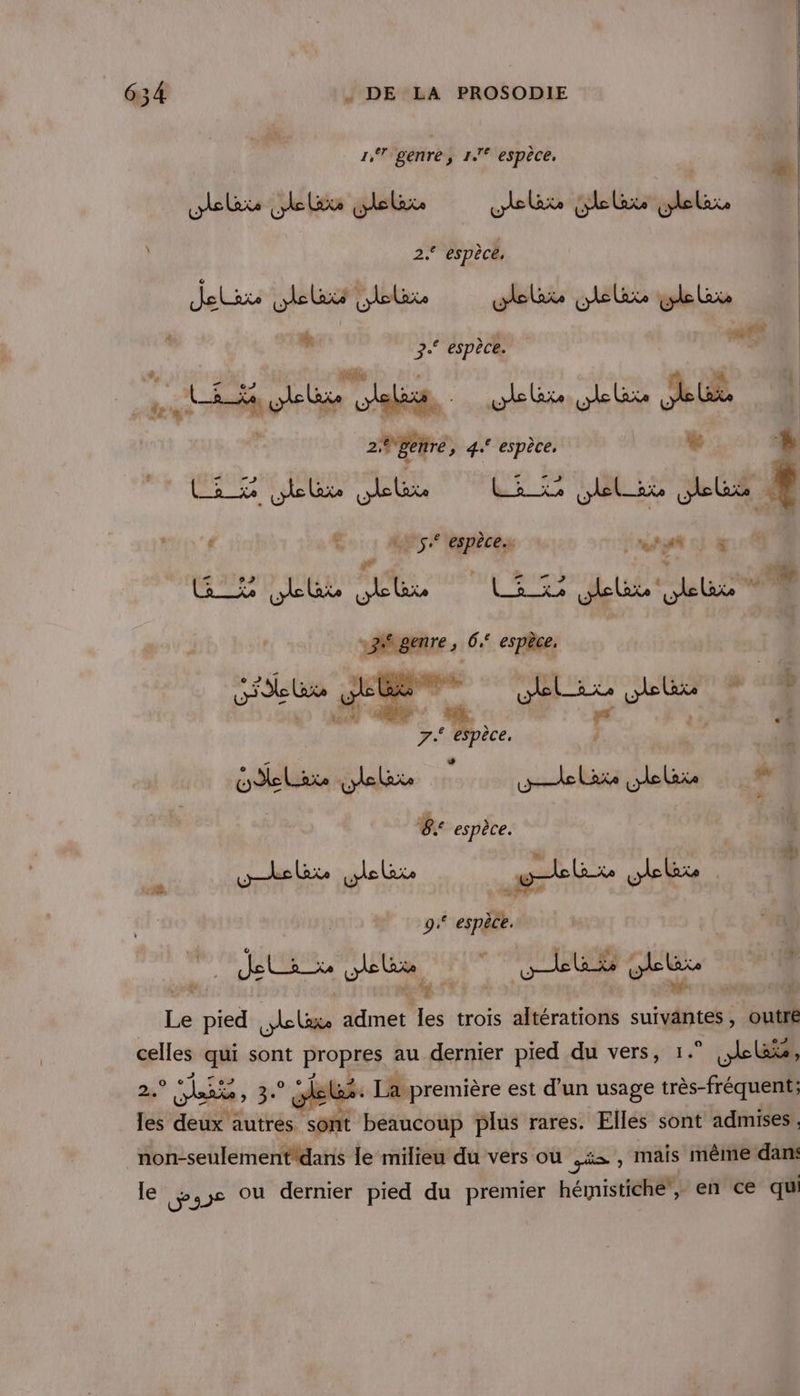 634 DE LA PROSODIE
1.er genre, 1.re espèce.
متفاعلن متفاعلن متفاعلن متفاعلن متفاعلن متفاعلن
2.e espèce.
متفاعلن متفاعلن متفاعلن متفاعلن متفاعلن متفاعل
3.e espèce.
متفاعلن متفاعلن متفاعلن متفاعلن متفاعلن متفا
2.e genre, 4.e espèce.
متفاعلن متفاعلن مُتَفَا متفاعلن متفاعلن مُتَفَا
5.e espèce.
متفاعلن متفاعلن مُتَفَا متفاعلن متفاعلن مُتْفَا
3.e genre, 6.e espèce.
متفاعلن متفاعلن متفاعلن متفاعلاتن
7.e espèce.
متفاعلن متفاعلن متفاعلن متفاعلان
8.e espèce.
متفاعلن متفاعلن متفاعلن متفاعلن
9.e espèce.
متفاعلن متفاعلن متفاعلن متفاعل
Le pied متفاعلن admet les trois altérations suivantes, outre
celles qui sont propres au dernier pied du vers, 1.° متفاعلن,
2.° , 3.° . La première est d'un usage très-fréquent;
les deux autres sont beaucoup plus rares. Elles sont admises,
non-seulement dans le milieu du vers ou حشو, mais même dans
le عروض ou dernier pied du premier hémistiche, en ce qui